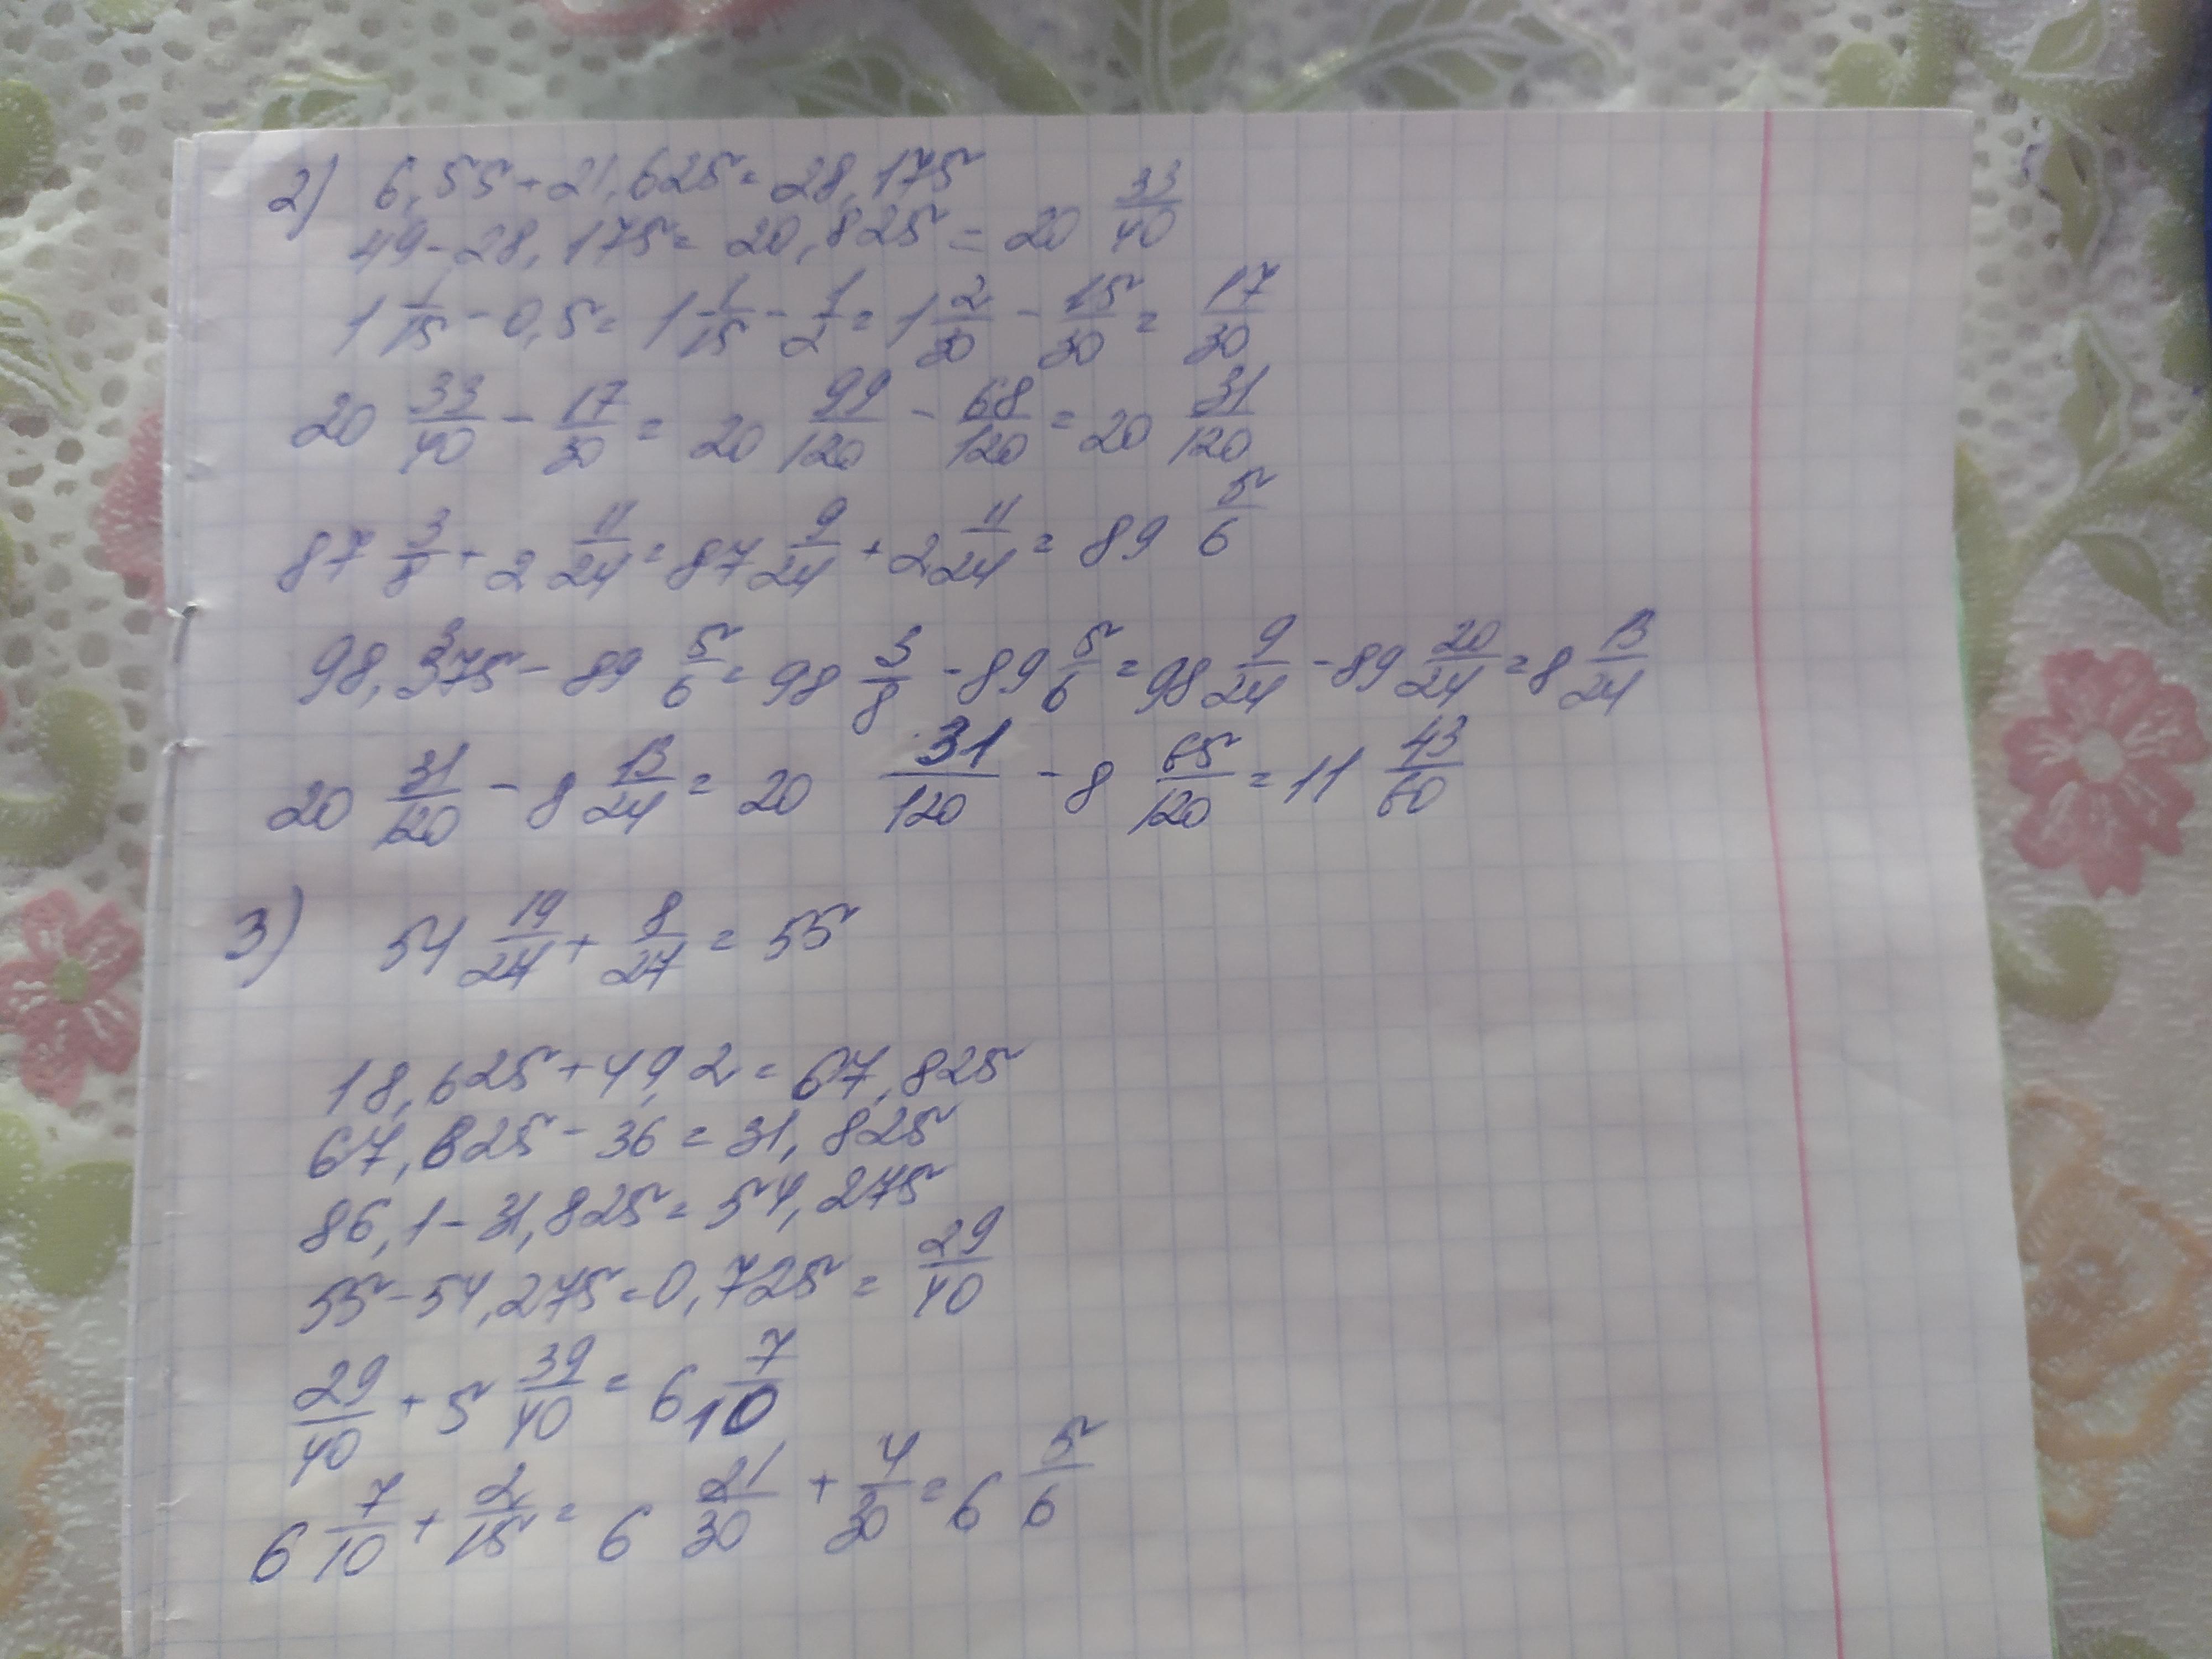 2) 6,55+21,625=28,175
49-28,175=20,825=20 33/40
1 1/15-0,5=1 1/15-1/2=1 2/30-15/30=17/30
20 33/40-17/30=20 99/120-68/120=20 31/120
87 3/8+2 11/24=87 9/24+2 11/24=89 5/6
98,375-89 5/6=98 3/8-89 5/6=98 9/24-89 20/24=8 13/24
20 31/120-8 13/24=20 31/120-8 65/120=11 43/60
3) 54 19/27+8/27=55
18,625+49,2=67,825
67,825-36=31,825
86,1-31,825=54,275
55-54,275=0,725=29/40
29/40+5 39/40=6 7/10
6 7/10+2/15=6 21/30+4/30=6 5/6